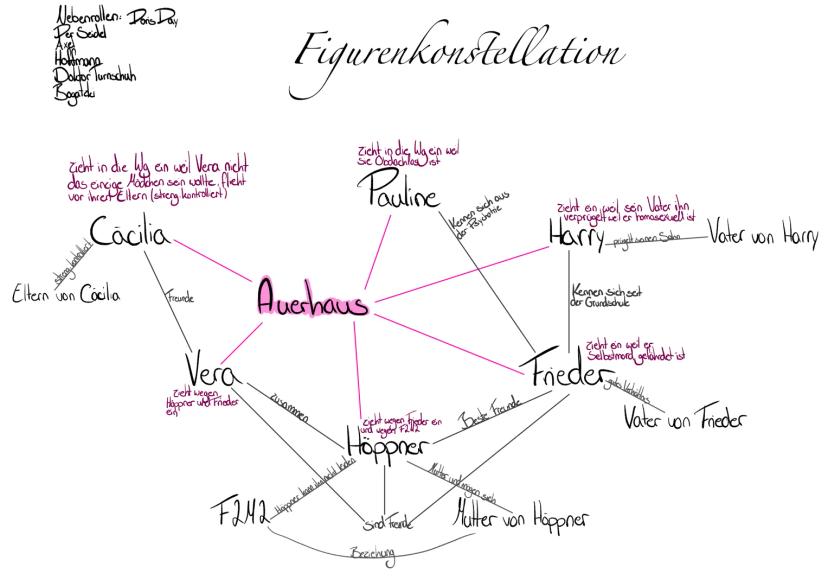 Nebenrollen: Doris Day
Per Seidel
Axel
Hoffmann
Doktor Turnschuh
Bogatzki
Figurenkonstellation
zieht in die Wg ein weil Vera nicht
das einzige Mädchen sein wollte, flieht
vor ihren Eltern (streng kontrolliert)
Cäcilia
streng kontrolliert
Eltern von Cäcilia
Freunde
zieht in die Wg ein weil
sie Obdachlos ist
Pauline
Kennen sich aus
der Psychatrie
zieht ein, weil sein Vater ihn
verprügelt weil er homosexuell ist
Harry
prügelt seinen Sohn
Vater von Harry
Kennen sich seit
der Grundschule
Auerhaus
Vera
zieht wegen
Höppner und Frieder
ein
zusammen
zieht ein weil er
Selbstmord gefährdet ist
Frieder
gutes Verhältnis
Vater von Frieder
Beste Freunde
zieht wegen Frieder ein
und wegen F2M2
Höppner
Höppner kann ihn nicht leiden
Mutter und mögen sich
F2M2
sind Freunde
Mutter von Höppner
Beziehung